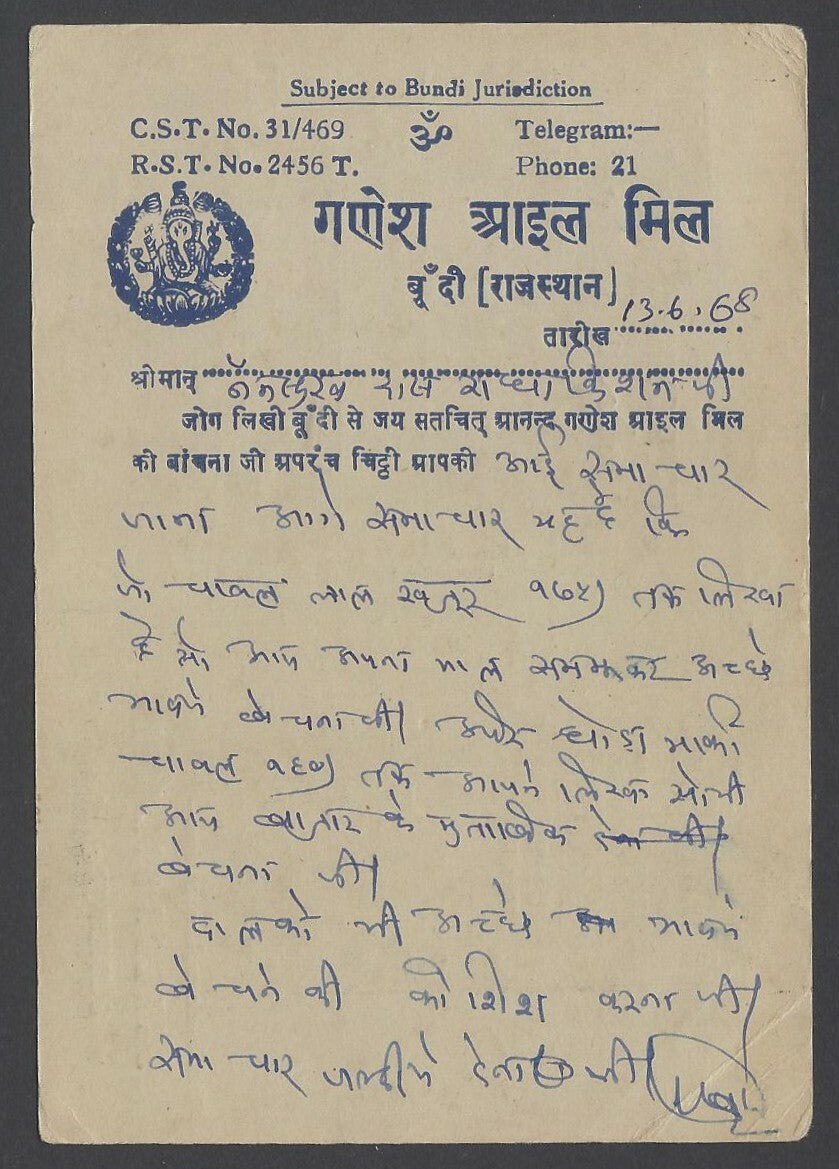 Subject to Bundi Jurisdiction
C.S.T. No. 31/469 ॐ Telegram:—
R.S.T. No. 2456 T. Phone: 21
गणेश आइल मिल
बूँदी [राजस्थान]
तारीख 13.6.68
श्रीमान् दास राधाकिशन जी
जोग लिखी बूँदी से जय सतचित् आनन्द गणेश आइल मिल
की बांचना जी अपरंच चिट्ठी आपकी आई समाचार
जाना आगे समाचार यह है कि
जो चावल लाल खजूर १७५) तक लिखा
है सो आप अपना माल समझकर अच्छे
भावमे बेचना जी। और घोडा मार्का
चावल १६७) तक आपने लिखा सो भी
आप बाजार के मुताबीक
बेचना जी।
दालको भी अच्छे भावमे
बेचने की कोशिश करना जी।
समाचार जल्दीमे देना जी।